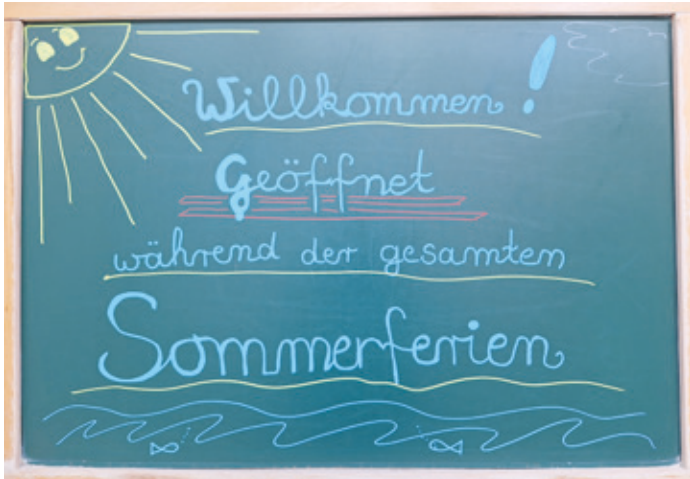 Willkommen!
Geöffnet
während der gesamten
Sommerferien